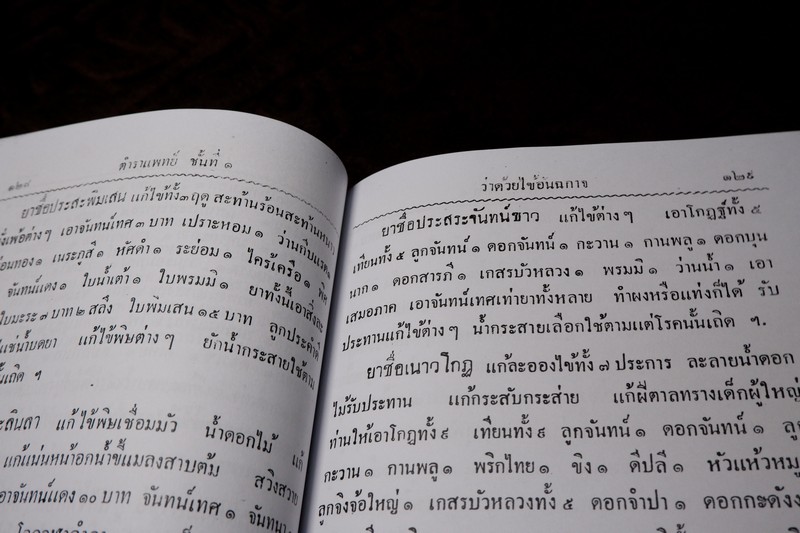 ๑๒๘
ตำราแพทย์ ชั้นที่ ๑
ยาชื่อประสะพิมเสน แก้ไข้ทั้ง๓ฤดู สะท้านร้อนสะท้านหนาว
เพ้อต่างๆ เอาจันทน์เทศ ๓ บาท เปราะหอม ๑ ว่านกีบแรด
ทอง ๑ เนระภูสี ๑ หัศดำ ๑ ระย่อม ๑ ไคร้เครือ ๑ พิศ
จันทน์แดง ๑ ใบน้ำเต้า ๑ ใบพรมมิ ๑ ยาทั้งนี้เอาสิ่งละ
ใบมะระ ๓ บาท ๒ สลึง ใบพิมเสน ๑๕ บาท ลูกประคำดี
แช่น้ำบดยา แก้ไข้พิษต่างๆ ยักน้ำกระสายใช้ตาม
เถิด ฯ
แก้ไข้พิษเชื่อมมัว น้ำดอกไม้ แก้
แก้แน่นหน้าอกน้ำขี้แมลงสาบต้ม สวิงสวาย
เอาจันทน์แดง ๑๐ บาท จันทน์เทศ ๑
ว่าด้วยไข้อันฉกาจ
๑๒๙
ยาชื่อประสะจันทน์ขาว แก้ไข้ต่างๆ เอาโกฎฐ์ทั้ง ๕
เทียนทั้ง ๕ ลูกจันทน์ ๑ ดอกจันทน์ ๑ กะวาน ๑ กานพลู ๑ ดอกบุน
นาก ๑ ดอกสารภี ๑ เกสรบัวหลวง ๑ พรมมิ ๑ ว่านน้ำ ๑ เอา
เสมอภาค เอาจันทน์เทศเท่ายาทั้งหลาย ทำผงหรือแท่งก็ได้ รับ
ประทานแก้ไข้ต่างๆ น้ำกระสายเลือกใช้ตามแต่โรคนั้นเถิด ฯ
ยาชื่อเนาวโกฏ แก้ละอองไข้ทั้ง ๗ ประการ ละลายน้ำดอก
ไม้รับประทาน แก้กระสับกระส่าย แก้ผีตาลทรางเด็กผู้ใหญ่
ท่านให้เอาโกฎทั้ง ๙ เทียนทั้ง ๙ ลูกจันทน์ ๑ ดอกจันทน์ ๑ ลูก
กะวาน ๑ กานพลู ๑ พริกไทย ๑ ขิง ๑ ดีปลี ๑ หัวแห้วหมู
ลูกจิงจ้อใหญ่ ๑ เกสรบัวหลวงทั้ง ๕ ดอกจำปา ๑ ดอกกะดังง